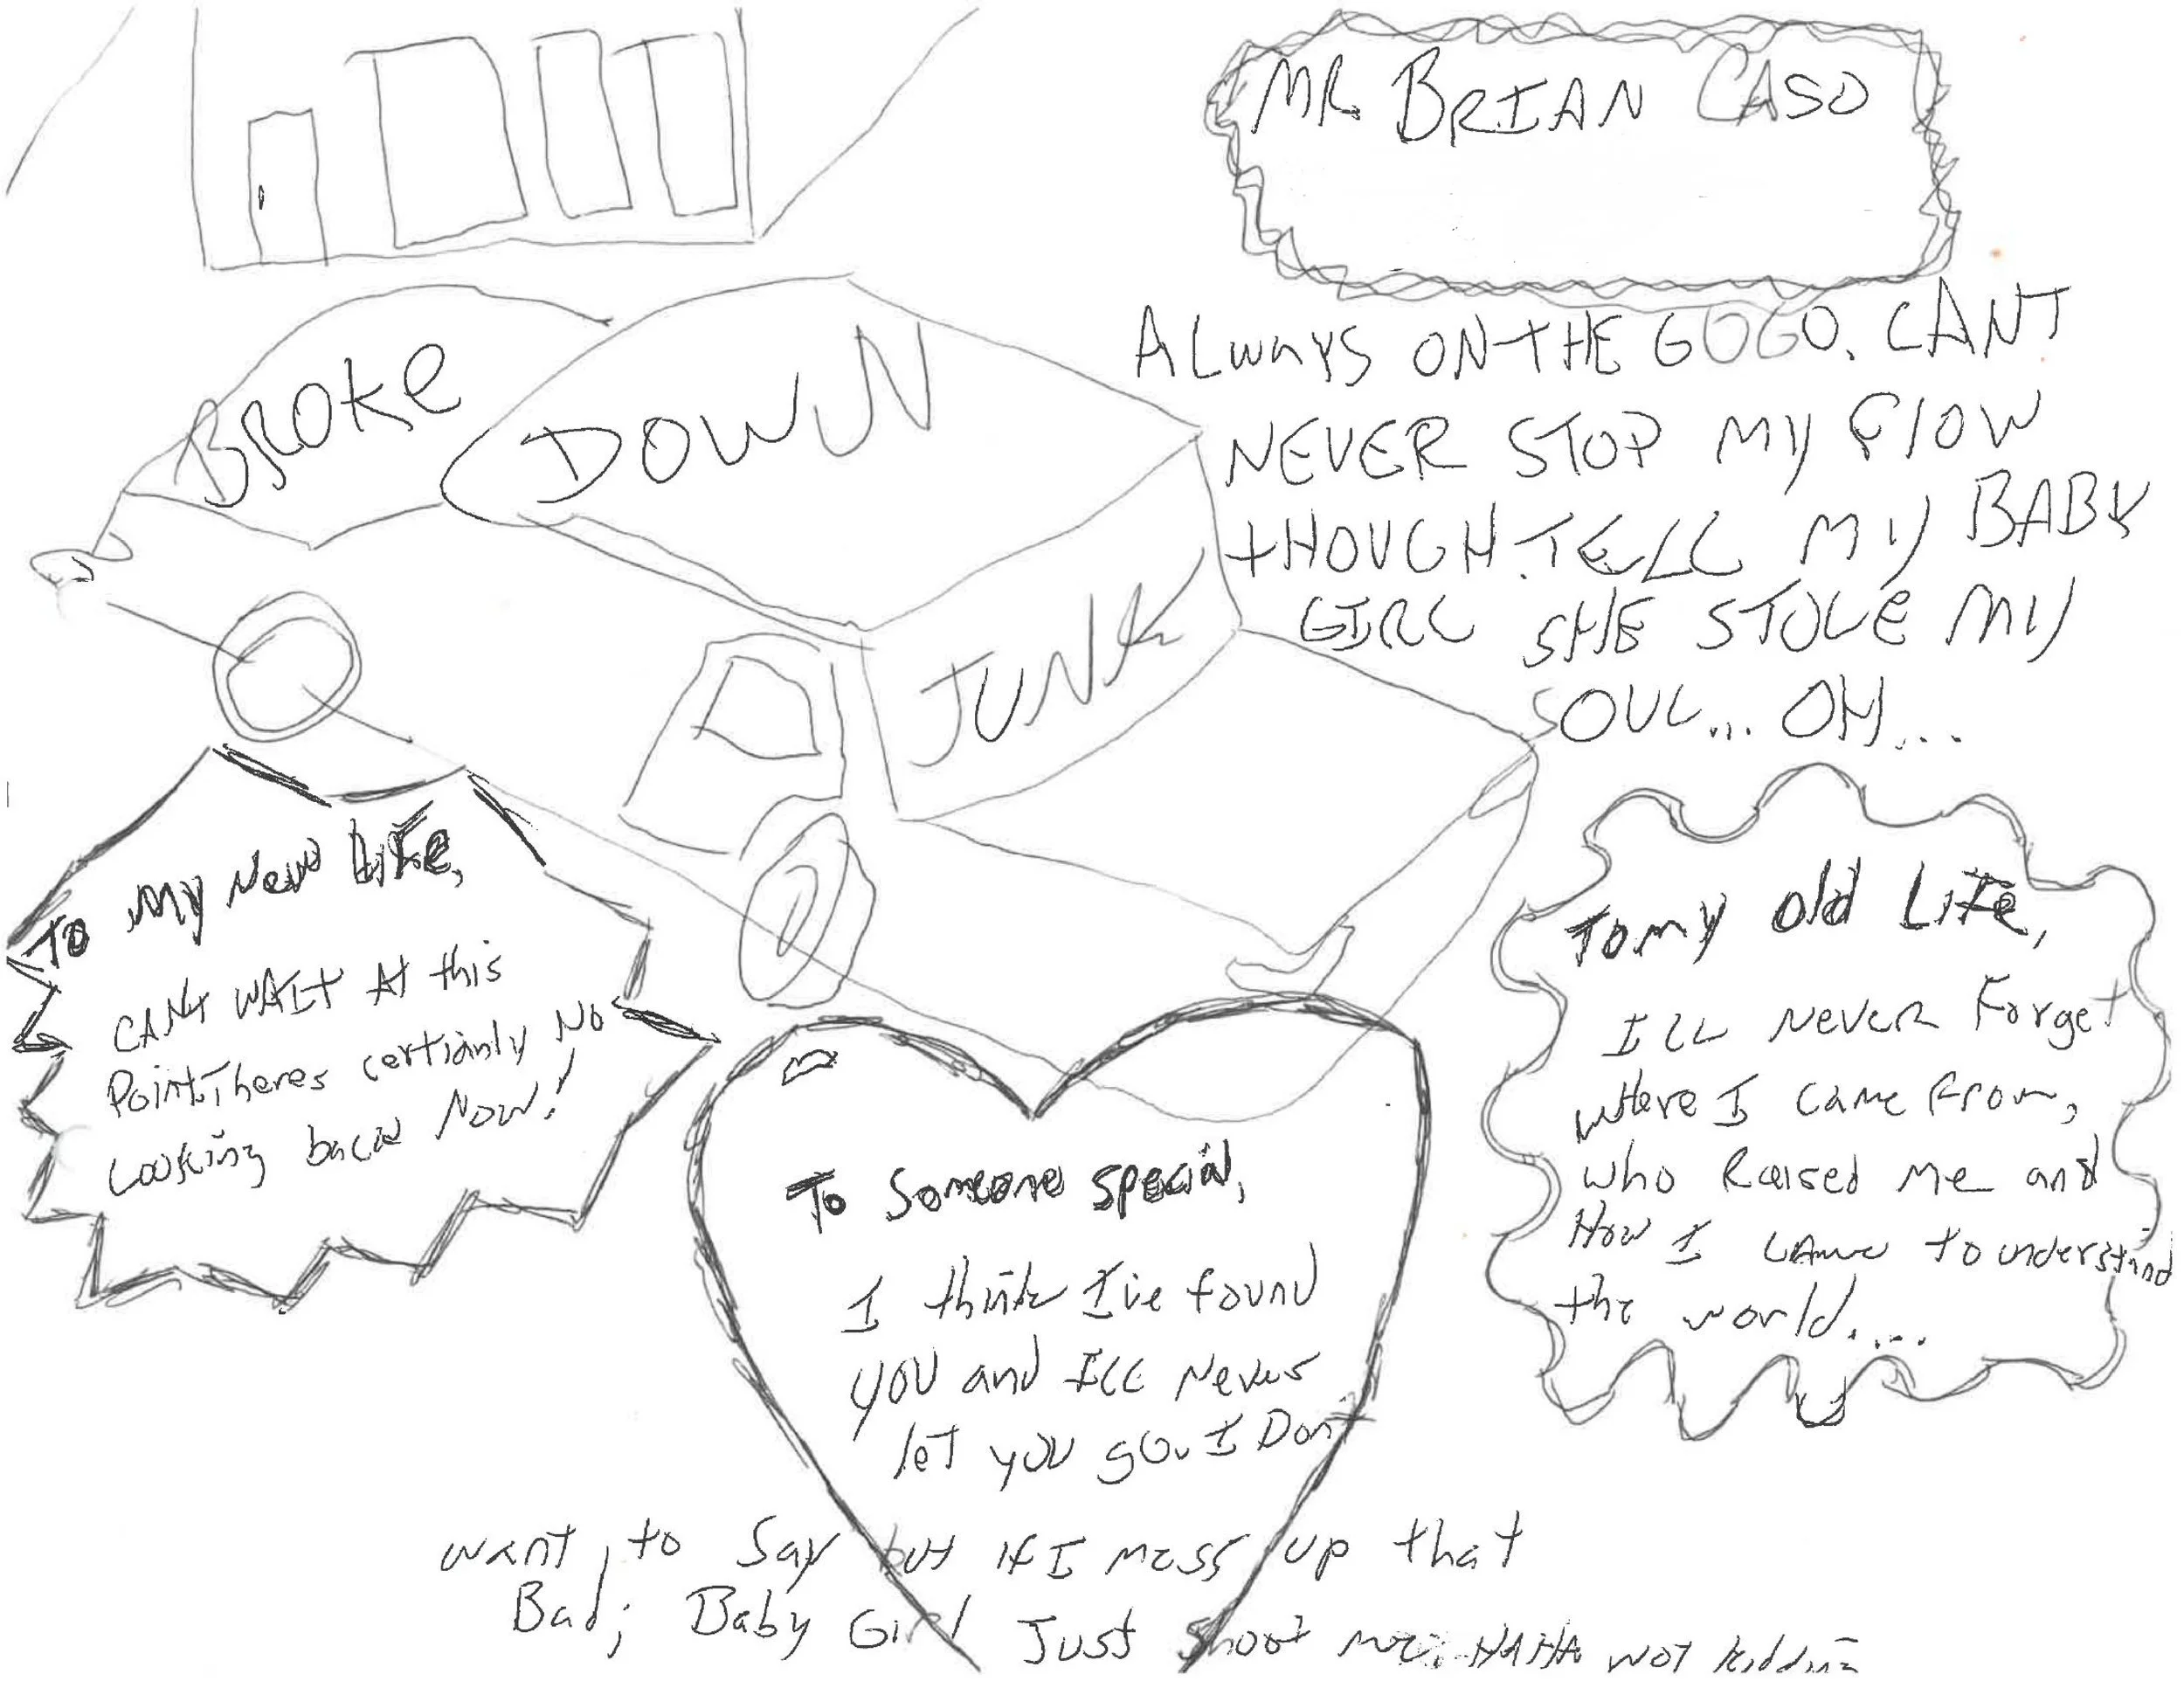 MR BRIAN CASO
ALways ON THE GOGO. CANT
NEVER STOP MY FlOW
tHOUGH. TELL MY BABY
GIRL SHE STOLE MY
SOUL... OH...
BROKE
DOWN
JUNK
To My New LIFE,
CANt WAIt At this
Point. Theres certianly No
Looking back Now!
To my Old LIFe,
ILL NEVER Forget
wHere I came From,
who Raised Me and
How I came to understand
the world....
To Someone special,
I think I've found
YOU and ILL Never
let you go. I Don't
want to Say but if I mess up that
Bad; Baby Girl Just shoot me. HAHA NOT kiddin